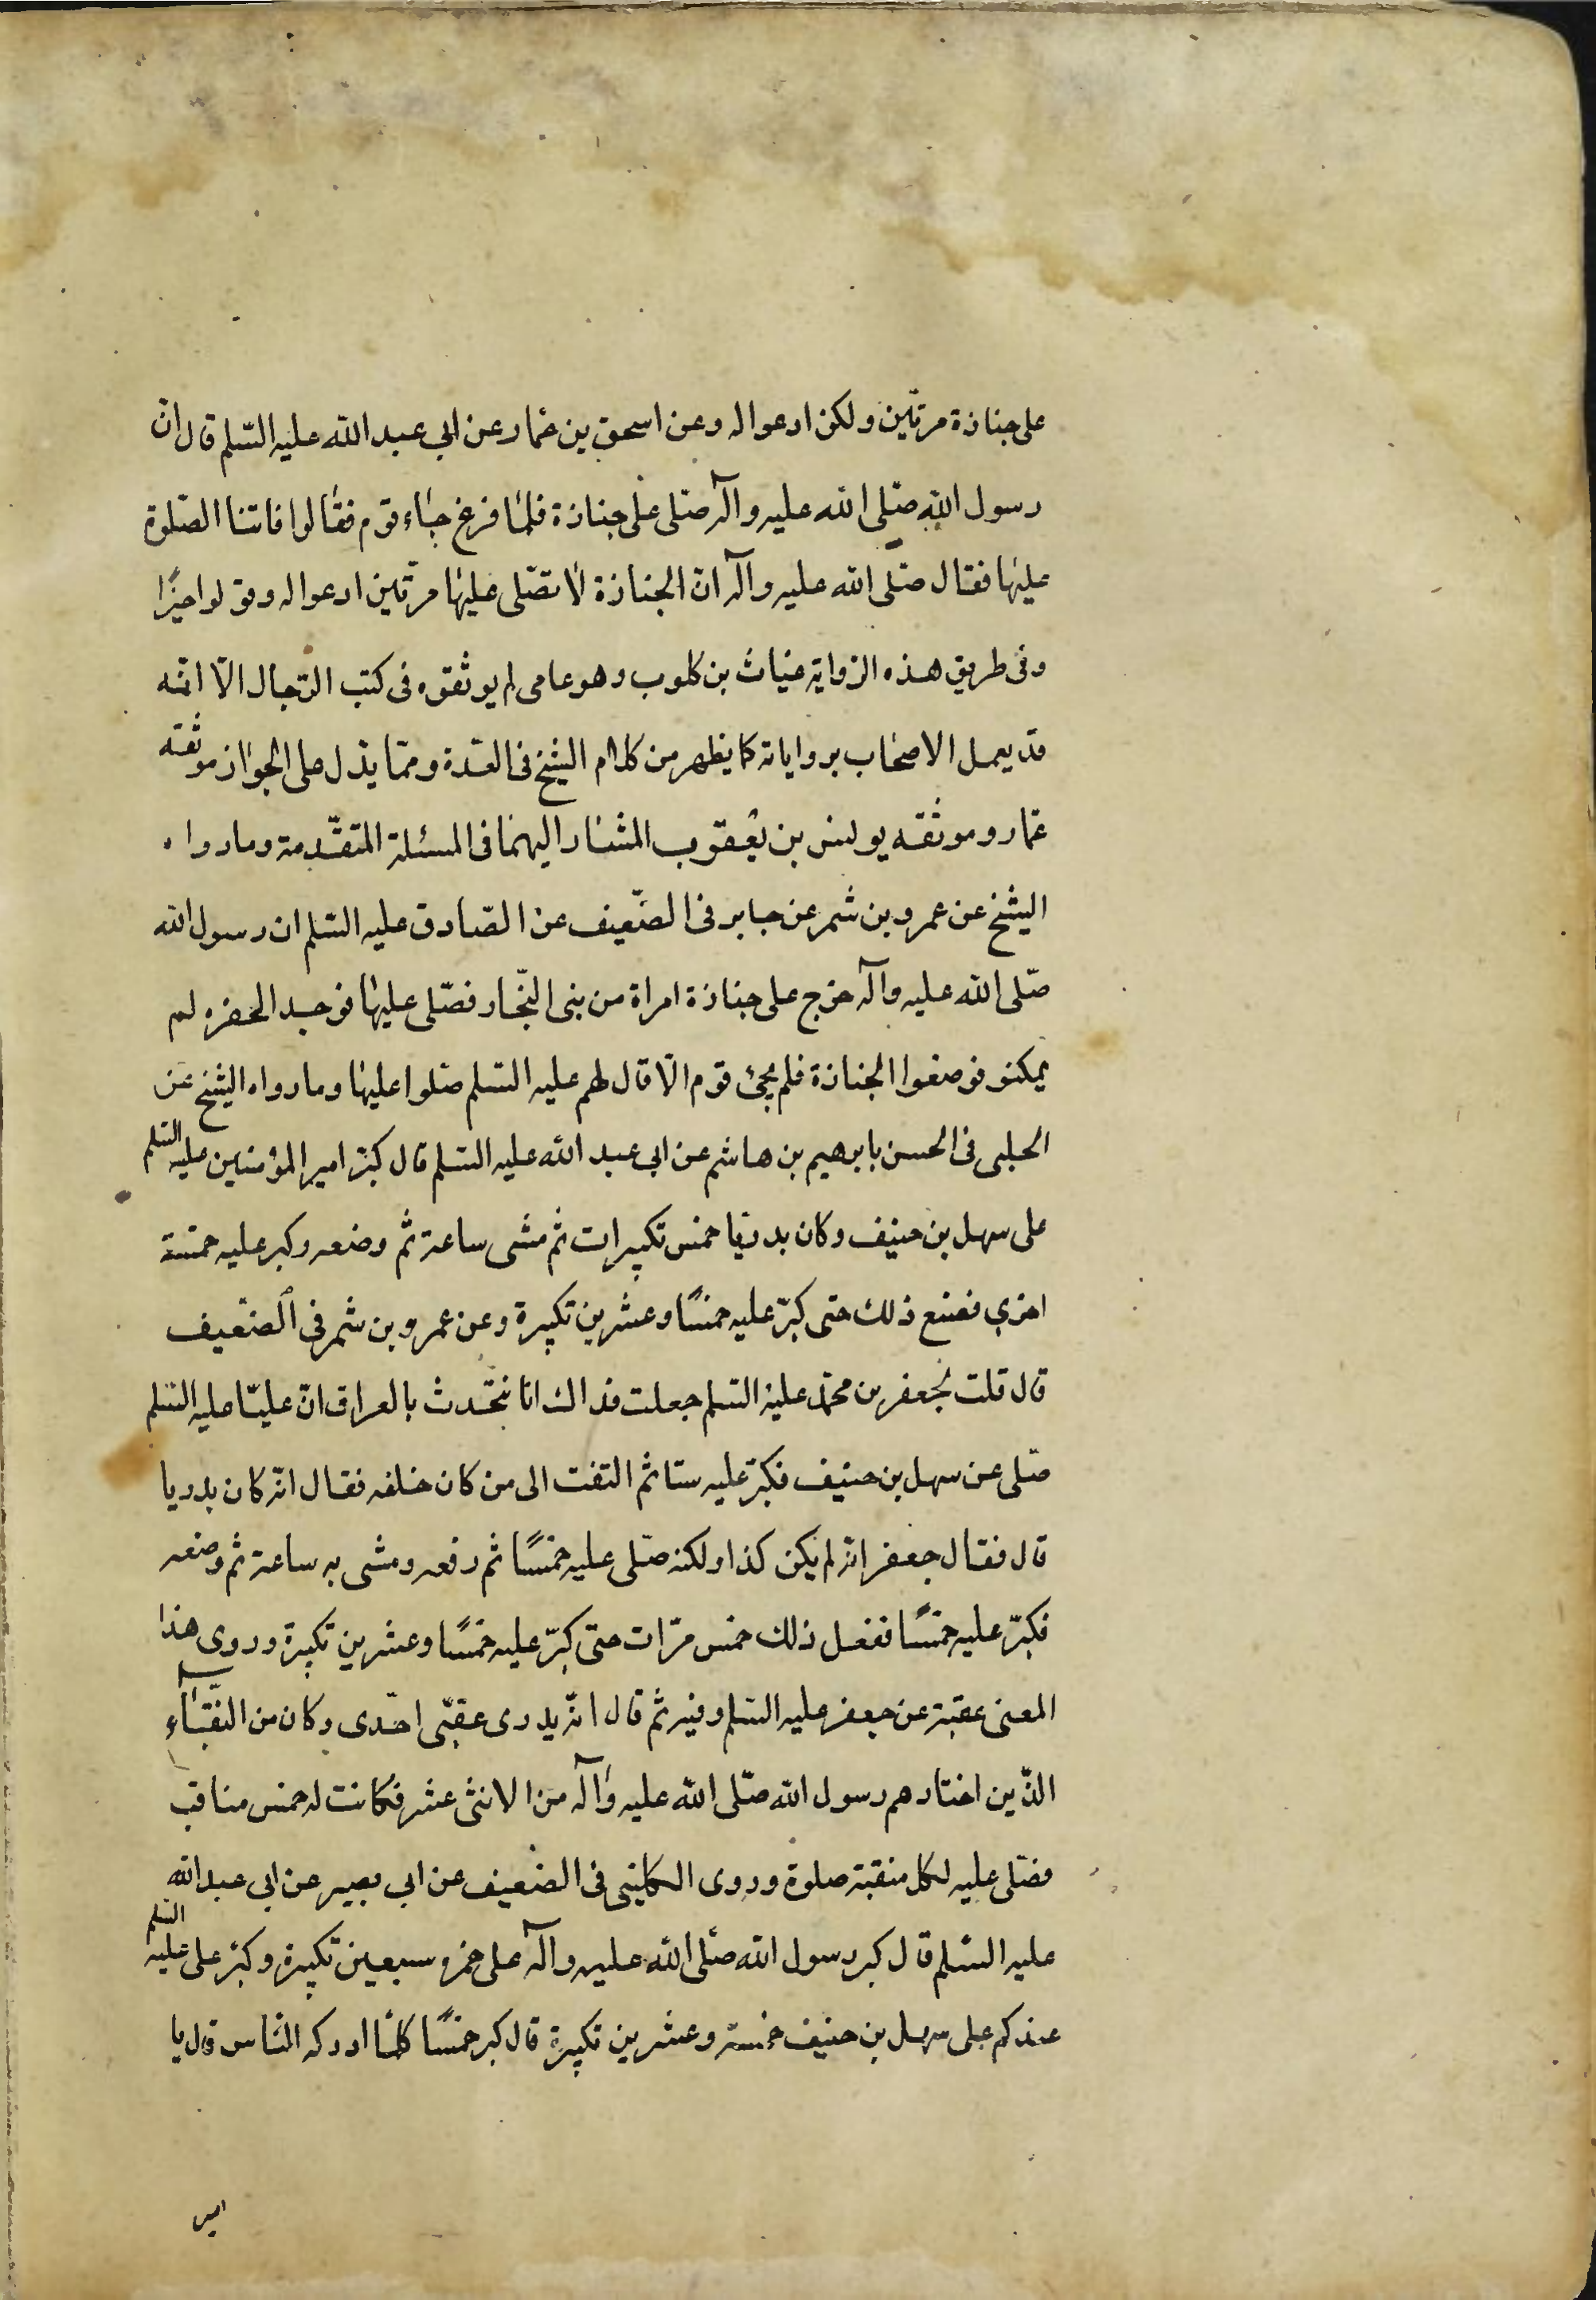 على جنازة مرتين ولكن ادعوا له وعن اسحق بن عمار عن ابي عبد الله عليه السّلم قال انّ
رسول الله صلّى الله عليه وآله صلّى على جنازة فلمّا فرغ جاء قوم فقالوا فاتتنا الصّلوة
عليها فقال صلّى الله عليه وآله انّ الجنازة لا تصلّى عليها مرّتين ادعوا له وقولوا خيرًا
وفى طريق هذه الرّواية غياث بن كلوب وهو عامى لم يوثقوه فى كتب الرّجال الّا انّه
قد يعمل الاصحاب برواياته كما يظهر من كلام الشيخ فى العدّة وممّا يدّل على الجواز موثقه
عمار وموثقه يونس بن يعقوب المشار اليهما فى المسئلة المتقدّمة وما رواه
الشيخ عن عمرو بن شمر عن جابر فى الضّعيف عن الصّادق عليه السّلم ان رسول الله
صّلى الله عليه وآله خرج على جنازة امراة من بنى النّجّار فصّلى عليها فوجد الحفره لم
يمكنو فوضعوا الجنازة فلم يجئ قوم الّا قال لهم عليه السّلم صّلوا عليها وما رواه الشيخ عن
الحلبى فى الحسن بابرهيم بن هاشم عن ابى عبد الله عليه السّلم قال كبّر امير المؤمنين عليه السّلم
على سهل بن حنيف وكان بدريّا خمس تكبيرات ثم مشى ساعة ثم وضعه وكبر عليه خمسة
اخرى فصنع ذلك حتى كبّر عليه خمسًا وعشرين تكبيرة وعن عمرو بن شمر فى الضّعيف
قال قلت لجعفر بن محمّد عليه السّلم جعلت فداك انّا نتحّدث بالعراق انّ عليّا عليه السّلم
صّلى عن سهل بن حنيف فكبّر عليه ستا ثم التفت الى من كان خلفه فقال انّه كان بدريا
قال فقال جعفر انّه لم يكن كذا ولكنه صّلى عليه خمسًا ثم رفعه ومشى به ساعة ثم وضعه
فكبّر عليه خمسًا ففعل ذلك خمس مرّات حتى كبّر عليه خمسًا وعشرين تكبيرة وروى هذا
المعنى عقبة عن جعفر عليه السّلم وفيه ثم قال انّه بدرى عقبّى احّدى وكان من النّقباء
الّذين اختارهم رسول الله صّلى الله عليه وآله من الاثنى عشر فكانت له خمس مناقب
فصّلى عليه لكل منقبة صلوة وروى الكلينى فى الضعيف عن ابى بصير عن ابى عبد الله
عليه السّلم قال كبر رسول الله صّلى الله عليه وآله على حمزه سبعين تكبيرة وكبّر على عليه السّلم
عندكم على سهل بن حنيف خمسة وعشرين تكبيرة قال كبر خمسًا كلمّا ادركه النّاس قال يا
امير